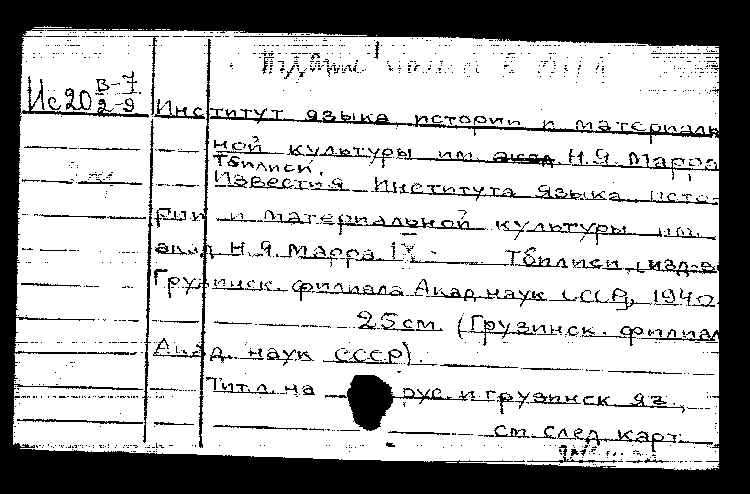 Ис20 В-7
2-9
Институт языка, истории и материаль
ной культуры им. акад Н.Я. Марра
Тбилиси.
Известия Института языка, исто-
рии и материальной культуры им.
акад Н.Я. Марра. IX - Тбилиси, изд-во
Грузинск. филиала Акад. наук СССР, 1940
25 см. (Грузинск. филиал
Акад. наук СССР).
Тит.л. на рус. и грузинск. яз.,
см. след. карт.